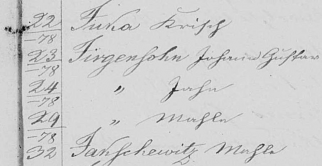 22 Tuna Krisch
78
23 Tirgensohn Johann Gustav
78
24 " Jahn
78
29 " Mahle
78
32 Janschewitz Mahle